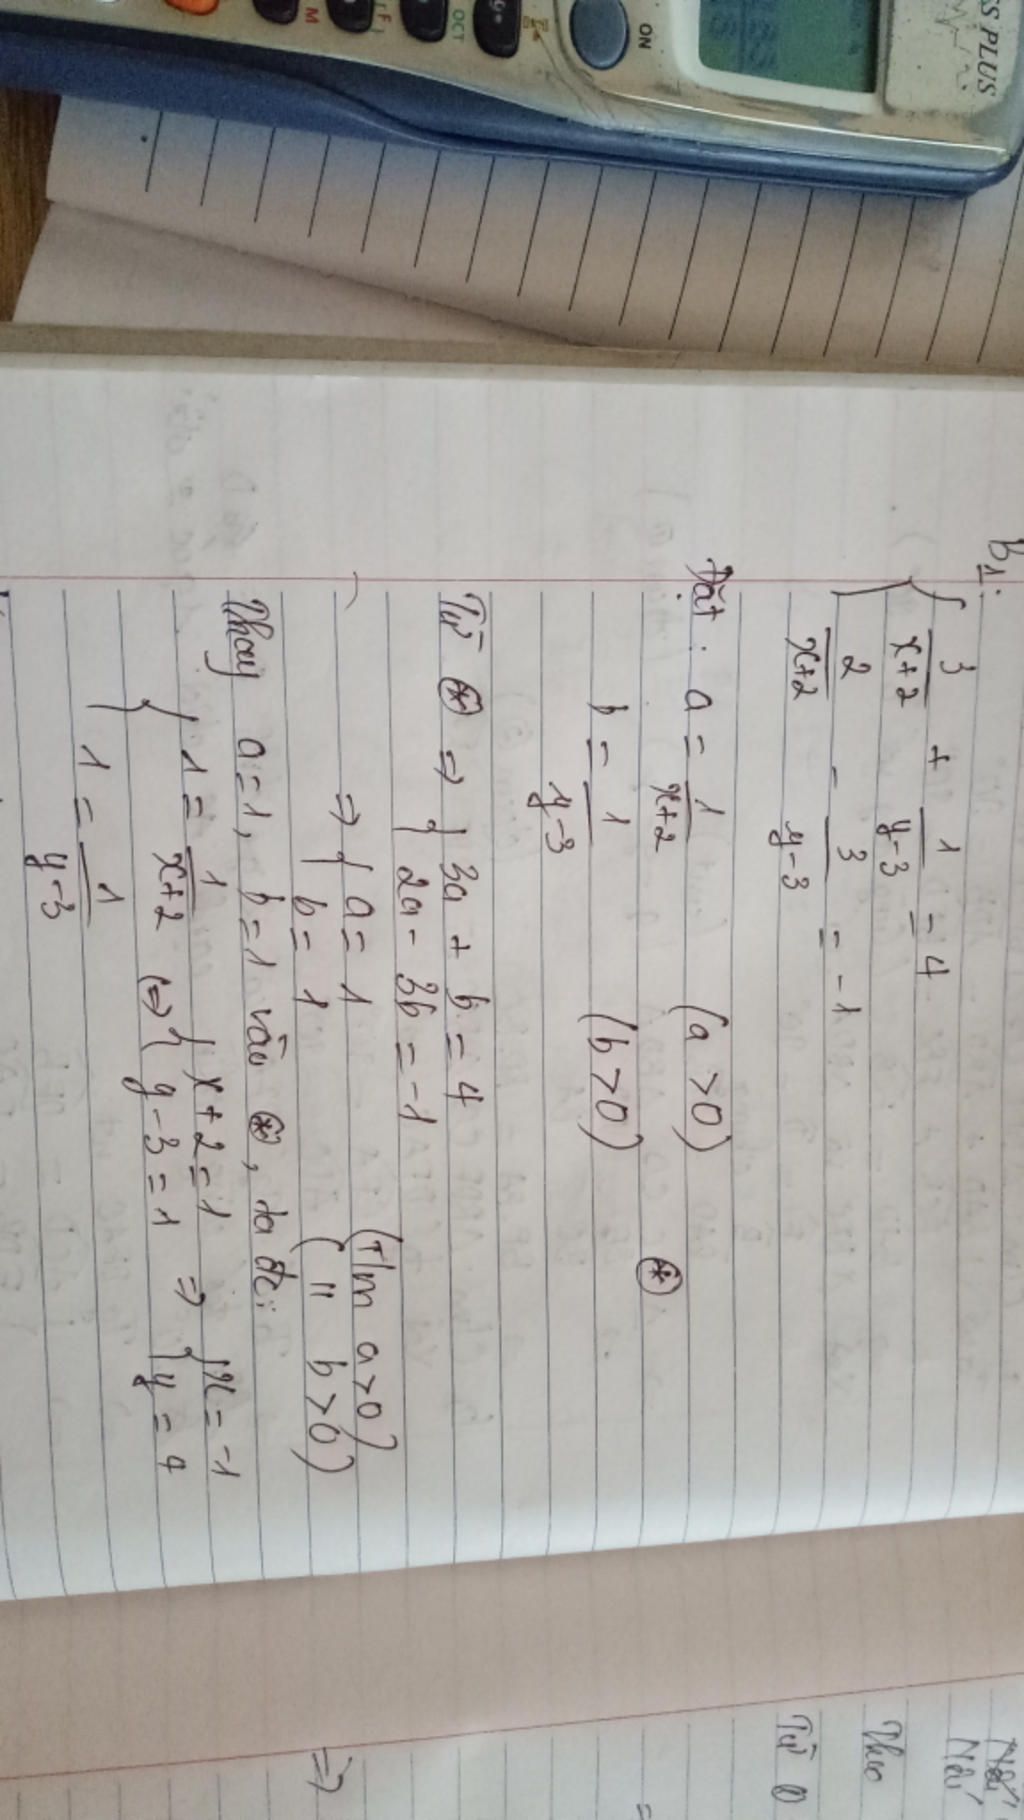 SS PLUS
ON
OCT
F
M
B1:
{ 3/(x+2) + 1/(y-3) = 4
2/(x+2) - 3/(y-3) = -1
Đặt: a = 1/(x+2) (a > 0)
b = 1/(y-3) (b > 0) ⊛
Từ ⊛ => { 3a + b = 4
2a - 3b = -1
=> { a = 1 (T/m a > 0)
b = 1 ( 11 b > 0)
Thay a = 1, b = 1 vào ⊛, ta đc:
{ 1 = 1/(x+2) <=> { x + 2 = 1 => { x = -1
1 = 1/(y-3) y - 3 = 1 y = 4
Nếu
Theo
Từ ①
=>
=